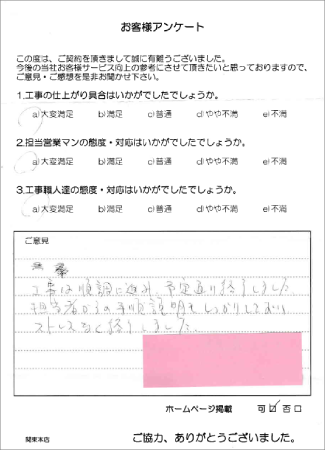 お客様アンケート
この度は、ご契約を頂きまして誠に有難うございました。
今後の当社お客様サービス向上の参考にさせて頂きたいと思っておりますので、
ご意見・ご感想を是非お聞かせ下さい。
1.工事の仕上がり具合はいかがでしたでしょうか。
a)大変満足 b)満足 c)普通 d)やや不満 e)不満
2.担当営業マンの態度・対応はいかがでしたでしょうか。
a)大変満足 b)満足 c)普通 d)やや不満 e)不満
3.工事職人達の態度・対応はいかがでしたでしょうか。
a)大変満足 b)満足 c)普通 d)やや不満 e)不満
ご意見
工事は順調に進み、予定通り終了しました。
担当者からの事前説明もしっかりしており
ストレスなく終りました。
ホームページ掲載 可☑ 否□
関東本店
ご協力、ありがとうございました。